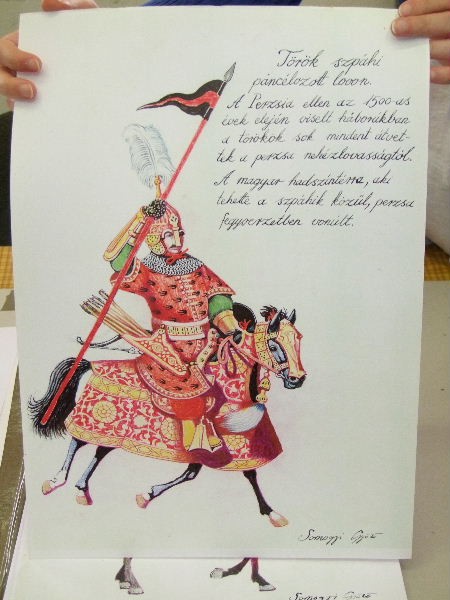 Török szpáhi
páncélozott lovon.
A Perzsia ellen az 1500-as
évek elején viselt háborúkban
a törökök sok mindent átvet-
tek a perzsa nehézlovasságtól.
A magyar hadszíntérre, aki
tehette a szpáhik közül, perzsa
fegyverzetben vonult.
Somogyi Győző
Somogyi Győző